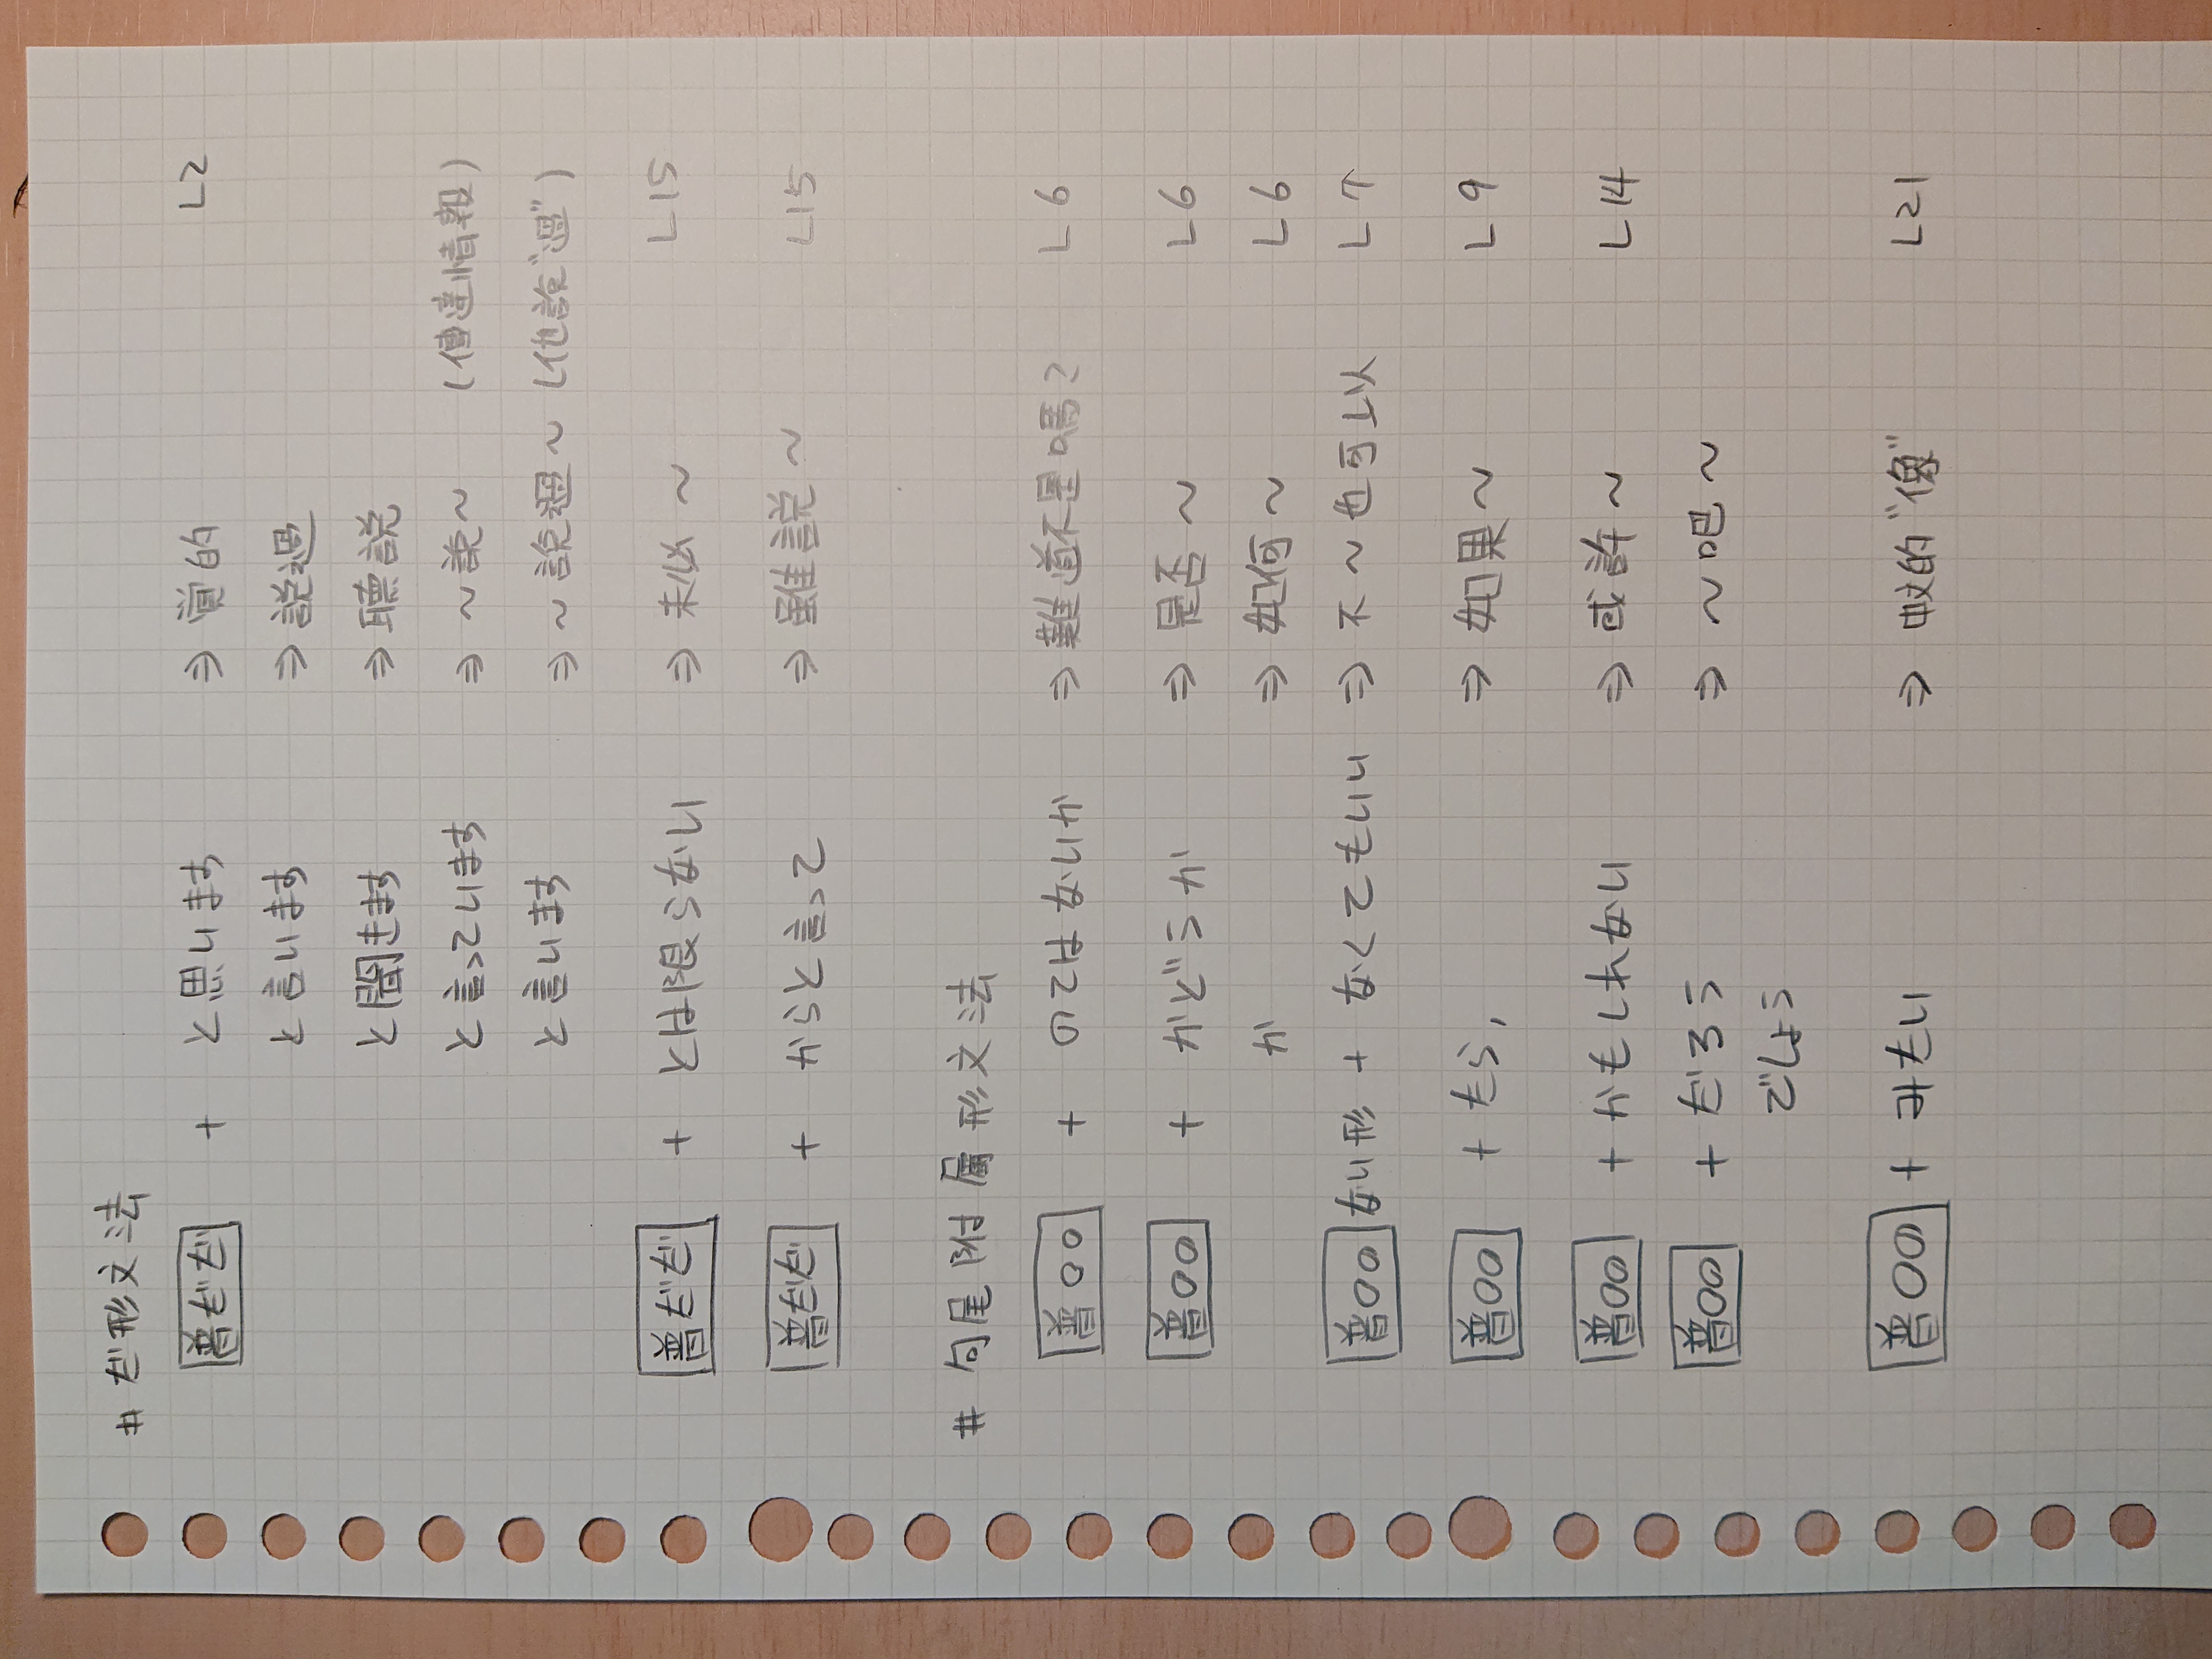 # だ形文法
普だだ + と思います ⇒ 覚的 L2
と言います ⇒ 説過
と聞きます ⇒ 聴説
と言っています ⇒ ~説~ (傳達情報)
と言います ⇒ ~說過~ (他說"過")
普だだ + とは限らない ⇒ 未必~ L15
普だだ + からと言って ⇒ 雖説~ L15
# 句尾附属形文法
普○○ + のてはないか ⇒ 難道不是嗎? L6
普○の + かどうか ⇒ 是否~ L6
か ⇒ 如何~ L6
普○の ない形 + なくてもいい ⇒ 不~也可以 L7
普○○ + たら, ⇒ 如果~ L9
普○の + かもしれない ⇒ 或許~ L14
普○の + だろう ⇒ ~吧~
でしょう
普○の + みたい ⇒ 的"像" L21